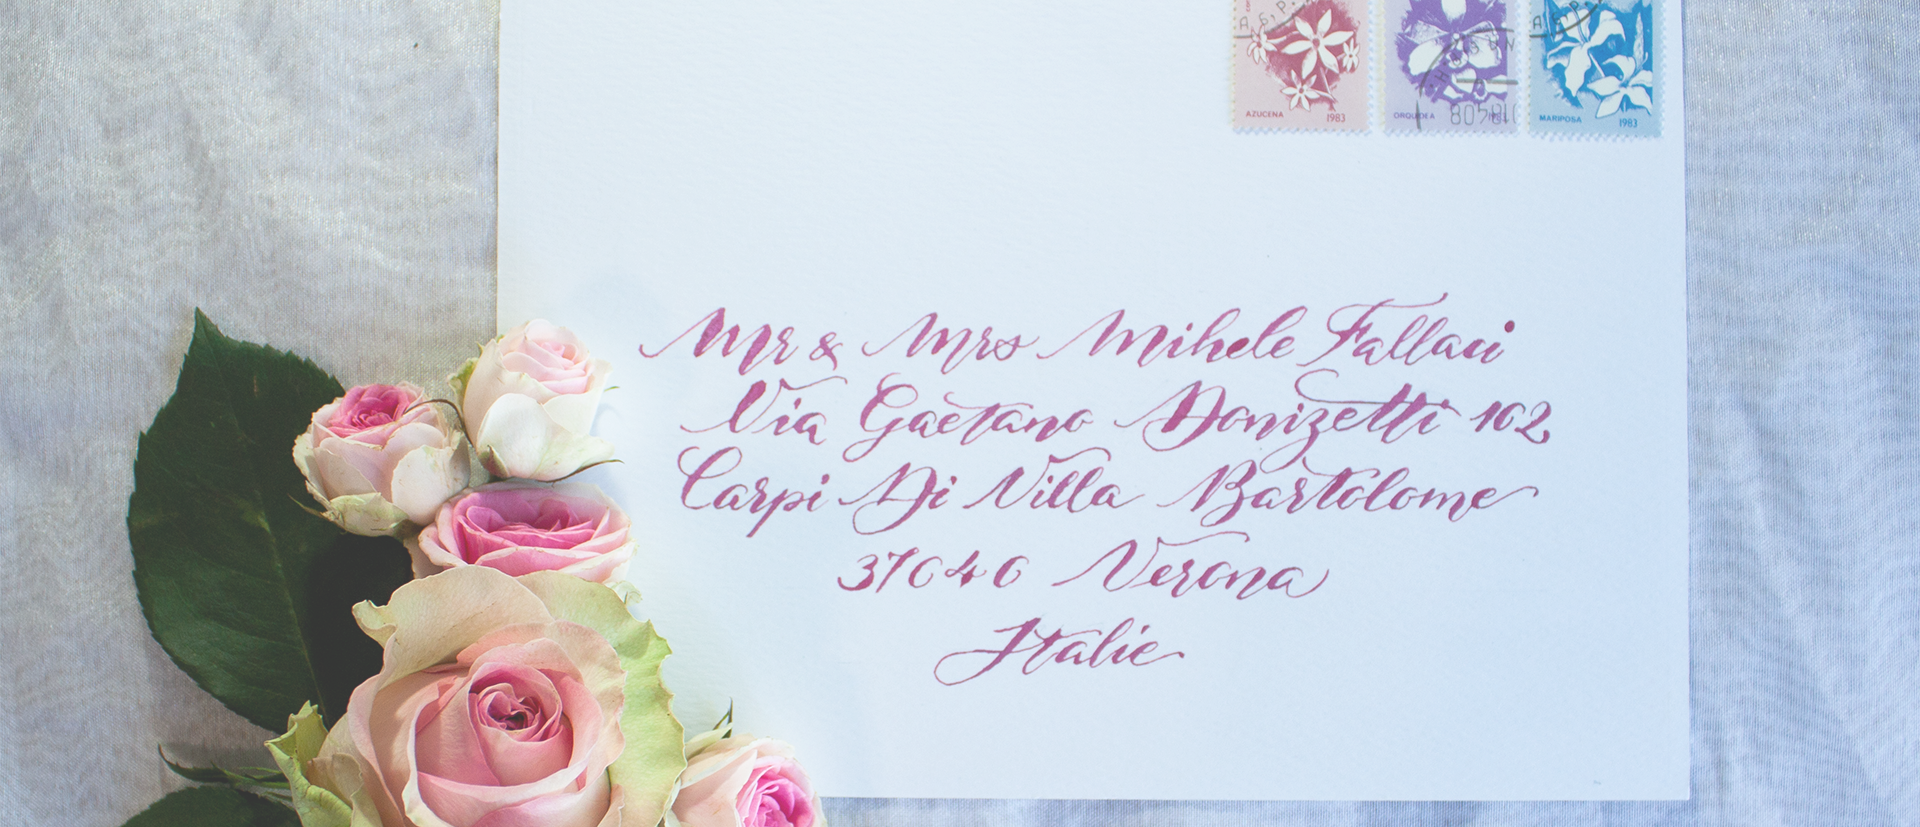 AZUCENA 1983 ORQUIDEA MARIPOSA 1983
Mr & Mrs Mihele Fallaci
Via Gaetano Donizetti 102
Carpi Di Villa Bartolome
37040 Verona
Italie